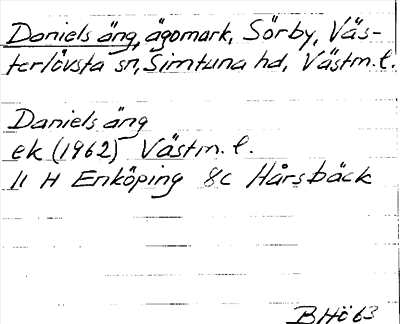 Daniels äng, ägomark, Sörby, Väs-
terlövsta sn, Simtuna hd, Västm.l.
Daniels äng
ek (1962) Västm.l.
11 H Enköping 8c Hårsbäck
BHö 63